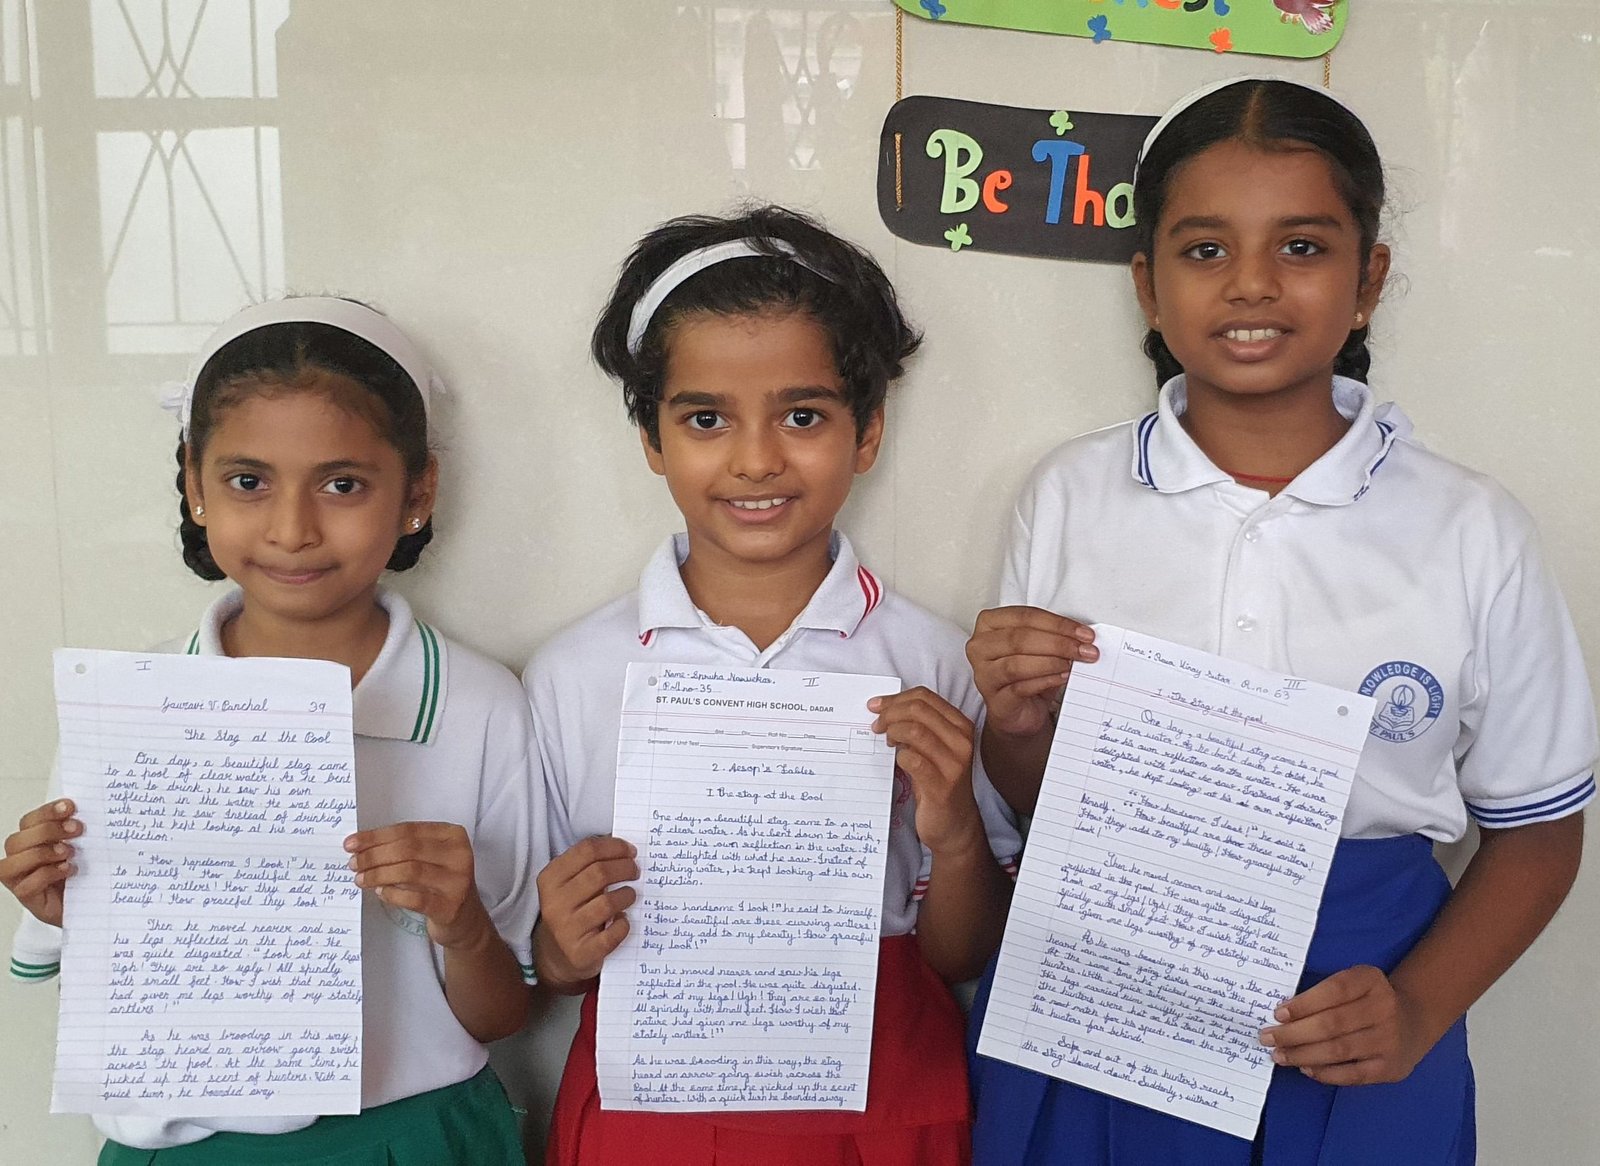 Be Tho
I
Gauravi V. Panchal 39
The Stag at the Pool
One day, a beautiful stag came
to a pool of clear water. As he bent
down to drink, he saw his own
reflection in the water. He was delight
with what he saw. Instead of drinking
water, he kept looking at his own
reflection.
"How handsome I look!" he said
to himself. "How beautiful are these
curving antlers! How they add to my
beauty! How graceful they look!"
Then he moved nearer and saw
his legs reflected in the pool. He
was quite disgusted. "Look at my legs!
Ugh! They are so ugly! All spindly
with small feet. How I wish that nature
had given me legs worthy of my stately
antlers!"
As he was brooding in this way,
the stag heard an arrow going swish
across the pool. At the same time, he
picked up the scent of hunters. With a
quick turn, he bounded away.
Name- Spruha Narvekar. II
Roll no-35
ST. PAUL'S CONVENT HIGH SCHOOL, DADAR
Subject Std. Div. Roll No. Date Marks
Semester / Unit Test Supervisor's Signature
2. Aesop's Fables
I The stag at the Pool
One day, a beautiful stag came to a pool
of clear water. As he bent down to drink,
he saw his own reflection in the water. He
was delighted with what he saw. Insteat of
drinking water, he kept looking at his own
reflection.
"How handsome I look!" he said to himself.
"How beautiful are these curving antlers!
How they add to my beauty! How graceful
they look!"
Then he moved nearer and saw his legs
reflected in the pool. He was quite disgusted.
"Look at my legs! Ugh! They are so ugly!
All spindly with small feet. How I wish that
nature had given me legs worthy of my
stately antlers!"
As he was brooding in this way, the stag
heard an arrow going swish across the
Pool. At the same time, he picked up the scent
of hunters. With a quick turn he bounded away.
Name: Vinay Sutar. R.no. 63 III
I. The Stag at the pool.
One day, a beautiful stag came to a pool
of clear water. As he bent down to drink, he
saw his own reflection in the water. He was
delighted with what he saw. Instead of drinking
water, he kept looking at his own reflection.
"How handsome I look!" he said to
himself. "How beautiful are these antlers!
How they add to my beauty! How graceful they
look!"
Then he moved nearer and saw his legs
reflected in the pool. He was quite disgusted.
"Look at my legs! Ugh! They are so ugly! All
spindly with small feet. How I wish that nature
had given me legs worthy of my stately antlers."
As he was brooding in this way, the stag
heard an arrow going swish across the pool
At the same time, he picked up the scent of
hunters. With a quick turn, he bounded away
His legs carried him swiftly into the forest.
The hunters were hot on his trail but they were
no match for his speed. Soon the stag left
the hunters far behind.
Safe and out of the hunter's reach,
the stag slowed down. Suddenly, without
KNOWLEDGE IS LIGHT
ST. PAUL'S